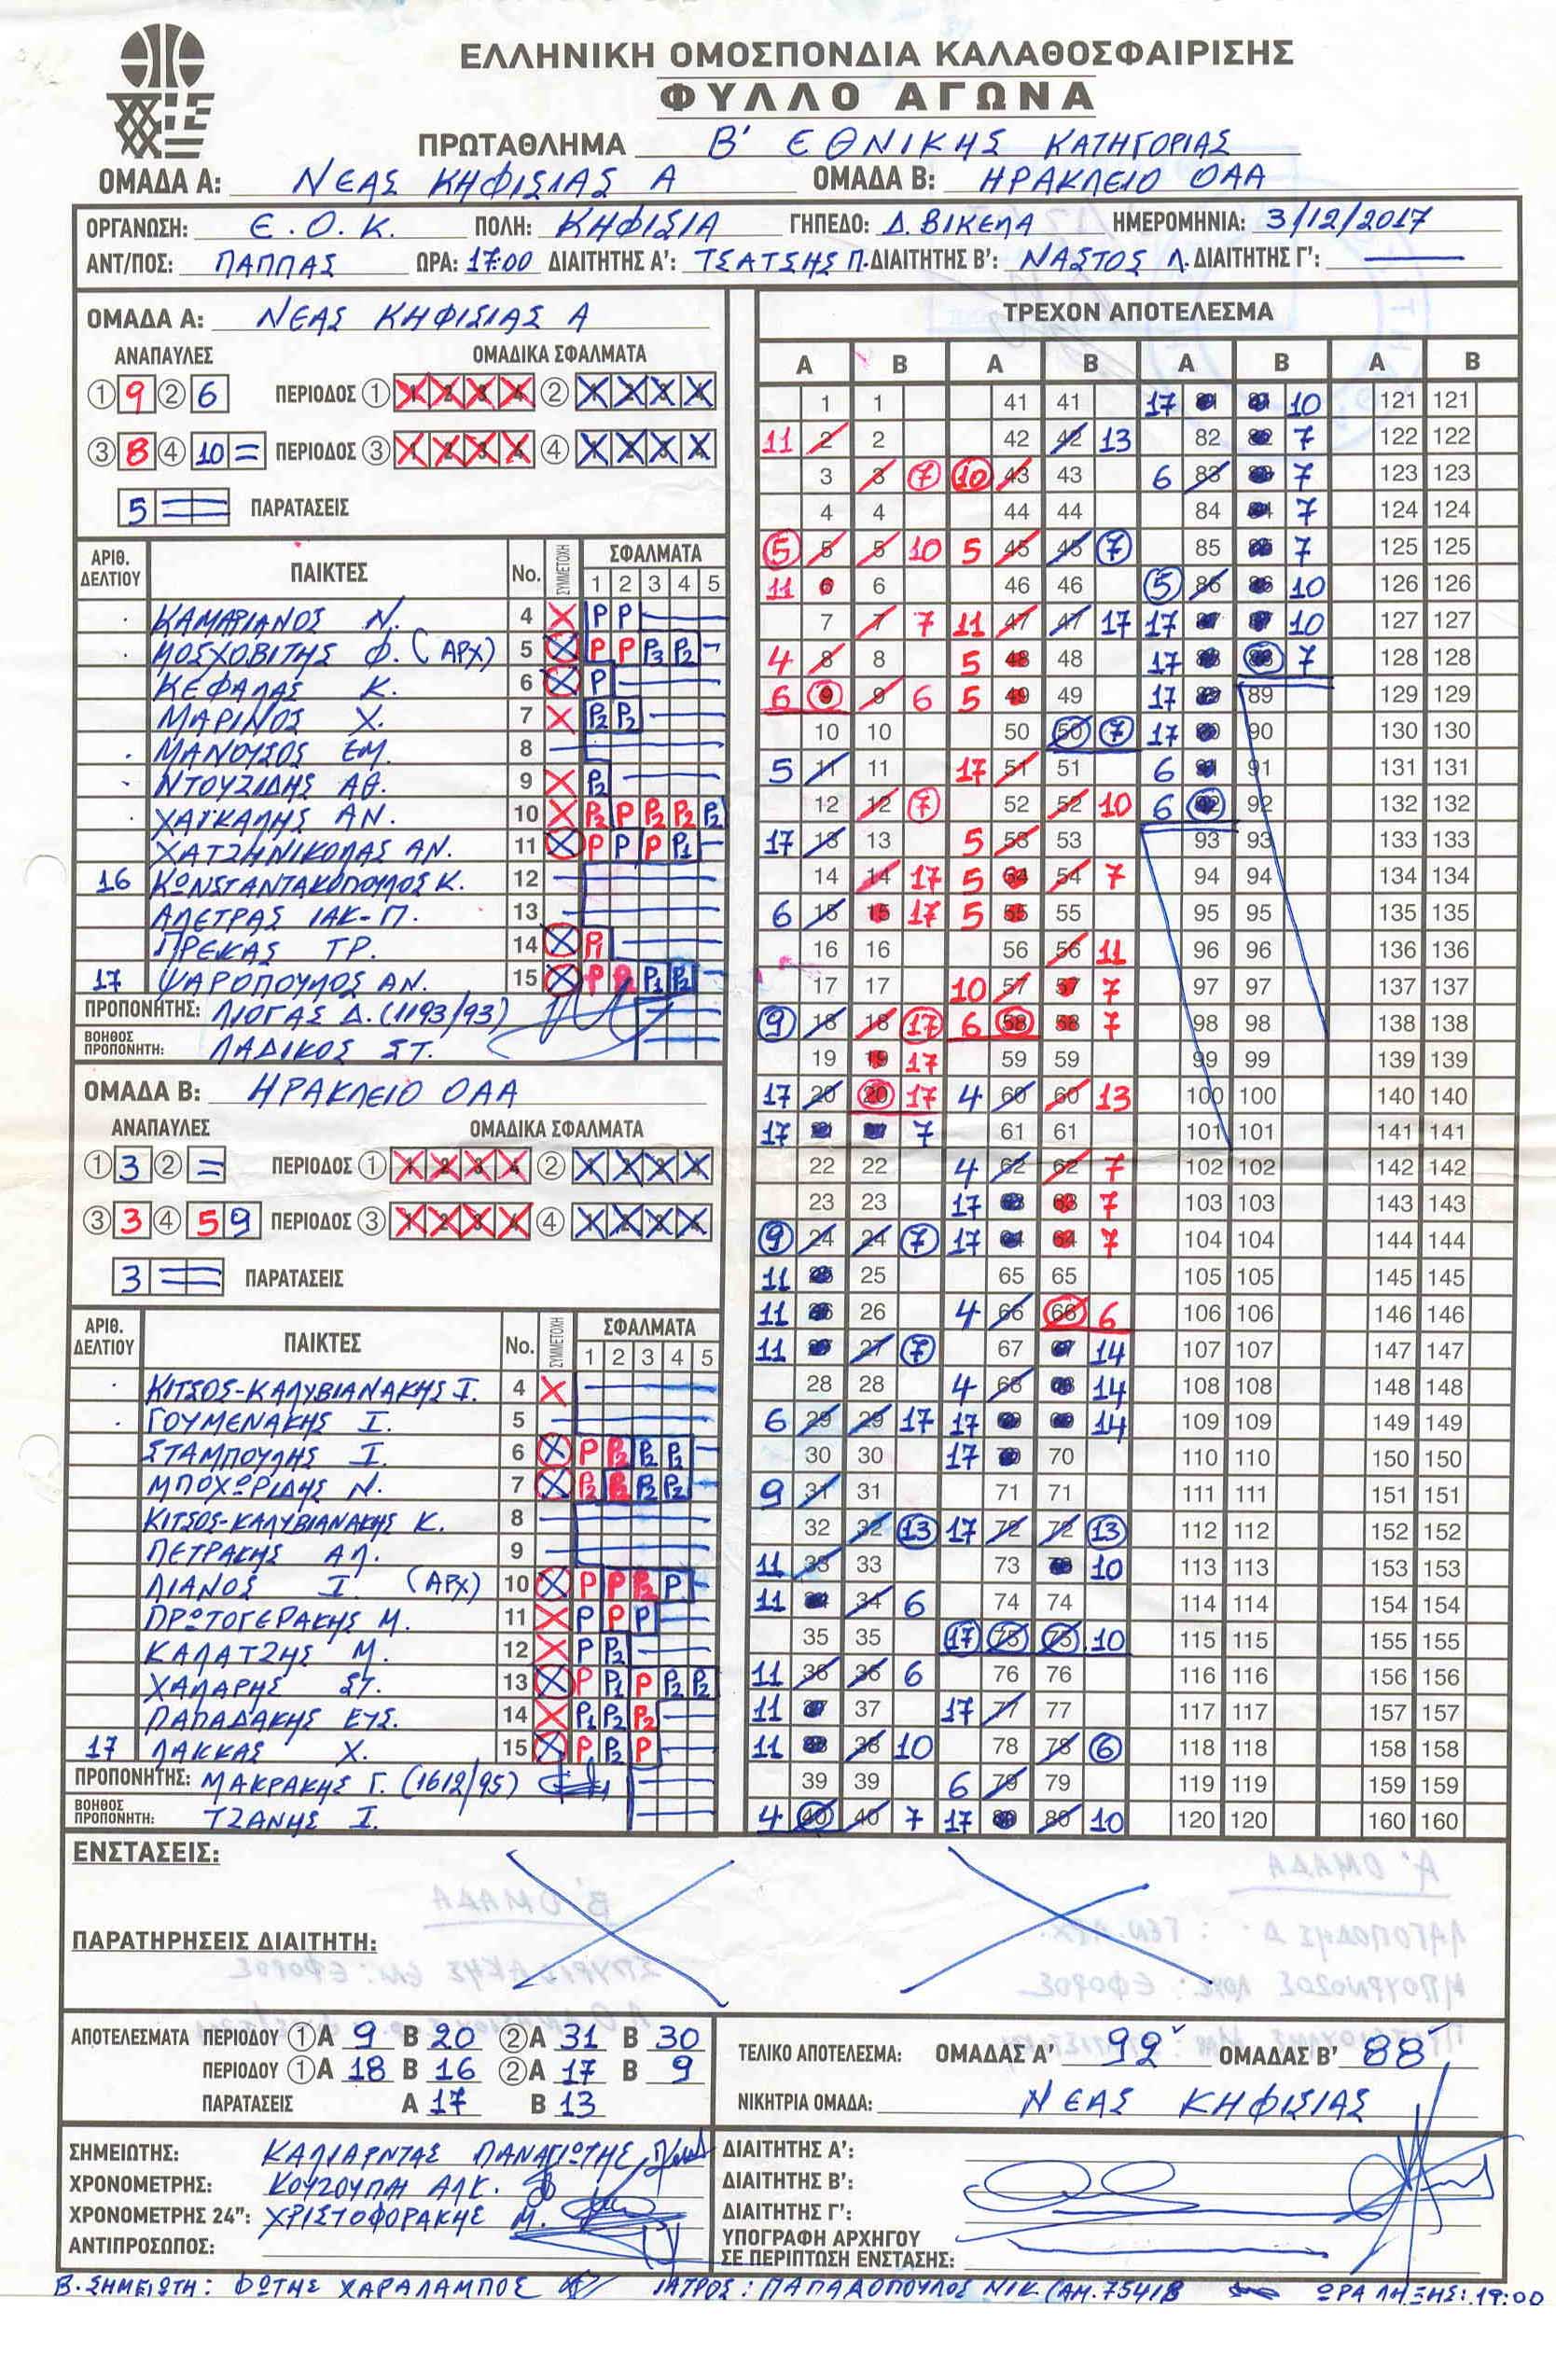 ΕΛΛΗΝΙΚΗ ΟΜΟΣΠΟΝΔΙΑ ΚΑΛΑΘΟΣΦΑΙΡΙΣΗΣ
ΦΥΛΛΟ ΑΓΩΝΑ
ΠΡΩΤΑΘΛΗΜΑ Β' ΕΘΝΙΚΗΣ ΚΑΤΗΓΟΡΙΑΣ
ΟΜΑΔΑ Α: ΝΕΑΣ ΚΗΦΙΣΙΑΣ Α ΟΜΑΔΑ Β: ΗΡΑΚΛΕΙΟ ΟΑΑ
ΟΡΓΑΝΩΣΗ: Ε.Ο.Κ. ΠΟΛΗ: ΚΗΦΙΣΙΑ ΓΗΠΕΔΟ: Δ. ΒΙΚΕΛΑ ΗΜΕΡΟΜΗΝΙΑ: 3/12/2017
ΑΝΤ/ΠΟΣ: ΠΑΠΠΑΣ ΩΡΑ: 17:00 ΔΙΑΙΤΗΤΗΣ Α': ΤΣΑΤΣΗΣ Π. ΔΙΑΙΤΗΤΗΣ Β': ΝΑΣΤΟΣ Λ. ΔΙΑΙΤΗΤΗΣ Γ':
ΟΜΑΔΑ Α: ΝΕΑΣ ΚΗΦΙΣΙΑΣ Α
ΑΝΑΠΑΥΛΕΣ ΟΜΑΔΙΚΑ ΣΦΑΛΜΑΤΑ
① 9 ② 6 ΠΕΡΙΟΔΟΣ ① 1 2 3 4 ② 1 2 3 4
③ 8 ④ 10 = ΠΕΡΙΟΔΟΣ ③ 1 2 3 4 ④ 1 2 3 4
5 ΠΑΡΑΤΑΣΕΙΣ
ΑΡΙΘ. ΔΕΛΤΙΟΥ ΠΑΙΚΤΕΣ No. ΣΥΜΜΕΤΟΧΗ ΣΦΑΛΜΑΤΑ
1 2 3 4 5
ΚΑΜΑΡΙΑΝΟΣ Ν. 4 X P P
ΜΟΣΧΟΒΙΤΗΣ Φ. (ΑΡΧ) 5 X P P P3 P2
ΚΕΦΑΛΑΣ Κ. 6 X P
ΜΑΡΙΝΟΣ Χ. 7 X P2 P2
ΜΑΝΟΥΣΟΣ ΕΜ. 8
ΝΤΟΥΖΙΔΗΣ ΑΘ. 9 X P2
ΧΑΥΚΑΛΗΣ ΑΝ. 10 X P2 P P2 P2 P2
ΧΑΤΖΗΝΙΚΟΛΑΣ ΑΝ. 11 X P P P P1
16 ΚΩΝΣΤΑΝΤΑΚΟΠΟΥΛΟΣ Κ. 12
ΑΛΕΤΡΑΣ ΙΑΚ-Π. 13
ΠΡΕΚΑΣ ΤΡ. 14 X P1
17 ΨΑΡΟΠΟΥΛΟΣ ΑΝ. 15 X P P2 P1 P2
ΠΡΟΠΟΝΗΤΗΣ: ΛΙΟΓΑΣ Δ. (1193/93)
ΒΟΗΘΟΣ ΠΡΟΠΟΝΗΤΗ: ΛΑΔΙΚΟΣ ΣΤ.
ΟΜΑΔΑ Β: ΗΡΑΚΛΕΙΟ ΟΑΑ
ΑΝΑΠΑΥΛΕΣ ΟΜΑΔΙΚΑ ΣΦΑΛΜΑΤΑ
① 3 ② = ΠΕΡΙΟΔΟΣ ① 1 2 3 4 ② 1 2 3 4
③ 3 ④ 5 9 ΠΕΡΙΟΔΟΣ ③ 1 2 3 4 ④ 1 2 3 4
3 ΠΑΡΑΤΑΣΕΙΣ
ΑΡΙΘ. ΔΕΛΤΙΟΥ ΠΑΙΚΤΕΣ No. ΣΥΜΜΕΤΟΧΗ ΣΦΑΛΜΑΤΑ
1 2 3 4 5
ΚΙΤΣΟΣ-ΚΑΛΥΒΙΑΝΑΚΗΣ Ι. 4 X
ΓΟΥΜΕΝΑΚΗΣ Ι. 5
ΣΤΑΜΠΟΥΛΗΣ Ι. 6 X P P2 P2 P2
ΜΠΟΧΩΡΙΔΗΣ Ν. 7 X P2 P2 P2 P2
ΚΙΤΣΟΣ-ΚΑΛΥΒΙΑΝΑΚΗΣ Κ. 8
ΠΕΤΡΑΚΗΣ ΑΛ. 9
ΛΙΑΝΟΣ Ι. (ΑΡΧ) 10 X P P P2 P
ΠΡΩΤΟΓΕΡΑΚΗΣ Μ. 11 X P P P
ΚΑΛΑΤΖΗΣ Μ. 12 X P P2
ΧΑΛΑΡΗΣ ΣΤ. 13 X P P1 P P2 P2
ΠΑΠΑΔΑΚΗΣ ΕΥΣ. 14 X P1 P2 P2
17 ΛΑΚΚΑΣ Χ. 15 X P P2 P
ΠΡΟΠΟΝΗΤΗΣ: ΜΑΚΡΑΚΗΣ Γ. (1612/95)
ΒΟΗΘΟΣ ΠΡΟΠΟΝΗΤΗ: ΤΖΑΝΗΣ Ι.
ΤΡΕΧΟΝ ΑΠΟΤΕΛΕΣΜΑ
Α Β Α Β Α Β Α Β
1 1 41 41 17 81 81 10 121 121
11 2 2 42 42 13 82 82 7 122 122
3 3 7 10 43 43 6 83 83 7 123 123
4 4 44 44 84 84 7 124 124
5 5 5 10 5 45 45 7 85 85 7 125 125
11 6 6 46 46 5 86 86 10 126 126
7 7 7 11 47 47 17 17 87 87 10 127 127
4 8 8 5 48 48 17 88 88 7 128 128
6 9 9 6 5 49 49 17 89 89 129 129
10 10 50 50 7 17 90 90 130 130
5 11 11 17 51 51 6 91 91 131 131
12 12 7 52 52 10 6 92 92 132 132
17 13 13 5 53 53 93 93 133 133
14 14 17 5 54 54 7 94 94 134 134
6 15 15 17 5 55 55 95 95 135 135
16 16 56 56 11 96 96 136 136
17 17 10 57 57 7 97 97 137 137
9 18 18 17 6 58 58 7 98 98 138 138
19 19 17 59 59 99 99 139 139
17 20 20 17 4 60 60 13 100 100 140 140
17 21 21 7 61 61 101 101 141 141
22 22 4 62 62 7 102 102 142 142
23 23 17 63 63 7 103 103 143 143
9 24 24 7 17 64 64 7 104 104 144 144
11 25 25 65 65 105 105 145 145
11 26 26 4 66 66 6 106 106 146 146
11 27 27 7 67 67 14 107 107 147 147
28 28 4 68 68 14 108 108 148 148
6 29 29 17 17 69 69 14 109 109 149 149
30 30 17 70 70 110 110 150 150
9 31 31 71 71 111 111 151 151
32 32 13 17 72 72 13 112 112 152 152
11 33 33 73 73 10 113 113 153 153
11 34 34 6 74 74 114 114 154 154
35 35 17 75 75 10 115 115 155 155
11 36 36 6 76 76 116 116 156 156
11 37 37 17 77 77 117 117 157 157
11 38 38 10 78 78 6 118 118 158 158
39 39 6 79 79 119 119 159 159
4 40 40 7 17 80 80 10 120 120 160 160
ΕΝΣΤΑΣΕΙΣ:
ΠΑΡΑΤΗΡΗΣΕΙΣ ΔΙΑΙΤΗΤΗ:
ΑΠΟΤΕΛΕΣΜΑΤΑ ΠΕΡΙΟΔΟΥ ① Α 9 Β 20 ② Α 31 Β 30
ΠΕΡΙΟΔΟΥ ① Α 18 Β 16 ② Α 17 Β 9
ΠΑΡΑΤΑΣΕΙΣ Α 17 Β 13
ΤΕΛΙΚΟ ΑΠΟΤΕΛΕΣΜΑ: ΟΜΑΔΑΣ Α' 92 ΟΜΑΔΑΣ Β' 88
ΝΙΚΗΤΡΙΑ ΟΜΑΔΑ: ΝΕΑΣ ΚΗΦΙΣΙΑΣ
ΣΗΜΕΙΩΤΗΣ: ΚΑΛΙΑΡΝΤΑΣ ΠΑΝΑΓΙΩΤΗΣ
ΧΡΟΝΟΜΕΤΡΗΣ: ΚΟΥΖΟΥΠΗ ΑΛΚ.
ΧΡΟΝΟΜΕΤΡΗΣ 24": ΧΡΙΣΤΟΦΟΡΑΚΗΣ Μ.
ΑΝΤΙΠΡΟΣΩΠΟΣ:
ΔΙΑΙΤΗΤΗΣ Α':
ΔΙΑΙΤΗΤΗΣ Β':
ΔΙΑΙΤΗΤΗΣ Γ':
ΥΠΟΓΡΑΦΗ ΑΡΧΗΓΟΥ
ΣΕ ΠΕΡΙΠΤΩΣΗ ΕΝΣΤΑΣΗΣ:
Β. ΣΗΜΕΙΩΤΗ: ΦΩΤΗΣ ΧΑΡΑΛΑΜΠΟΣ ΙΑΤΡΟΣ: ΠΑΠΑΔΟΠΟΥΛΟΣ ΝΙΚ. (ΑΜ. 75418 ΩΡΑ ΛΗΞΗΣ: 19:00